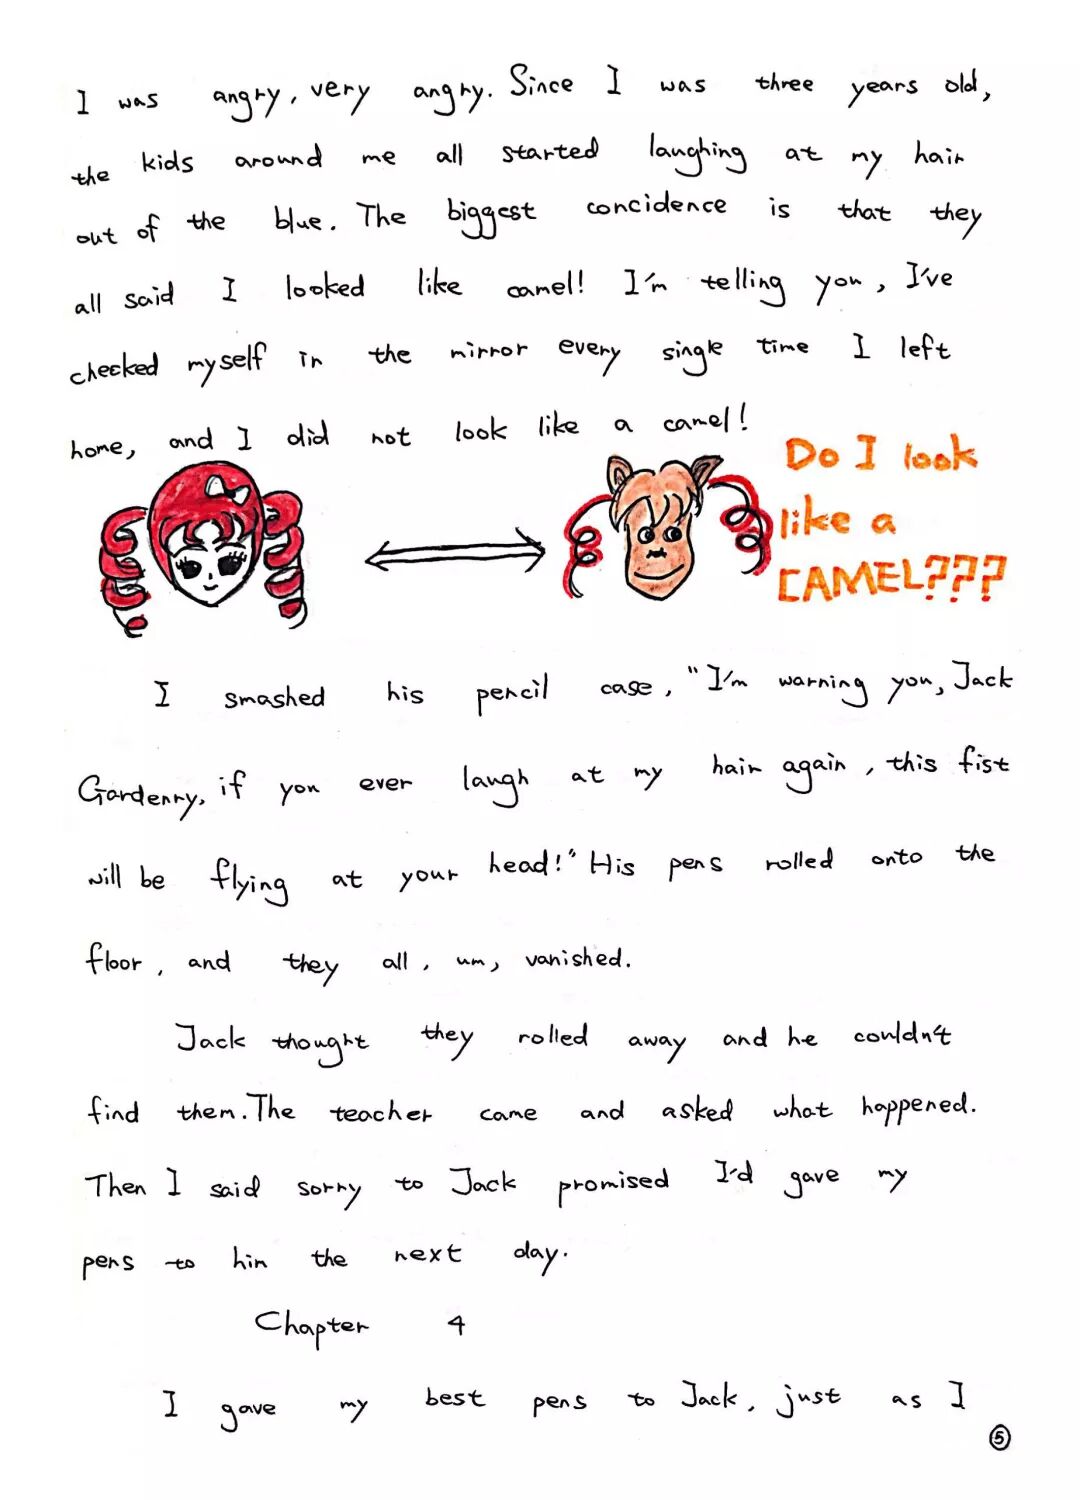 I was angry, very angry. Since I was three years old,
the kids around me all started laughing at my hair
out of the blue. The biggest concidence is that they
all said I looked like camel! I'm telling you, I've
checked myself in the mirror every single time I left
home, and I did not look like a camel!
Do I look
like a
CAMEL???
I smashed his pencil case, "I'm warning you, Jack
Gardenry, if you ever laugh at my hair again, this fist
will be flying at your head!" His pens rolled onto the
floor, and they all, um, vanished.
Jack thought they rolled away and he couldn't
find them. The teacher came and asked what happened.
Then I said sorry to Jack promised I'd gave my
pens to him the next day.
Chapter 4
I gave my best pens to Jack, just as I
5